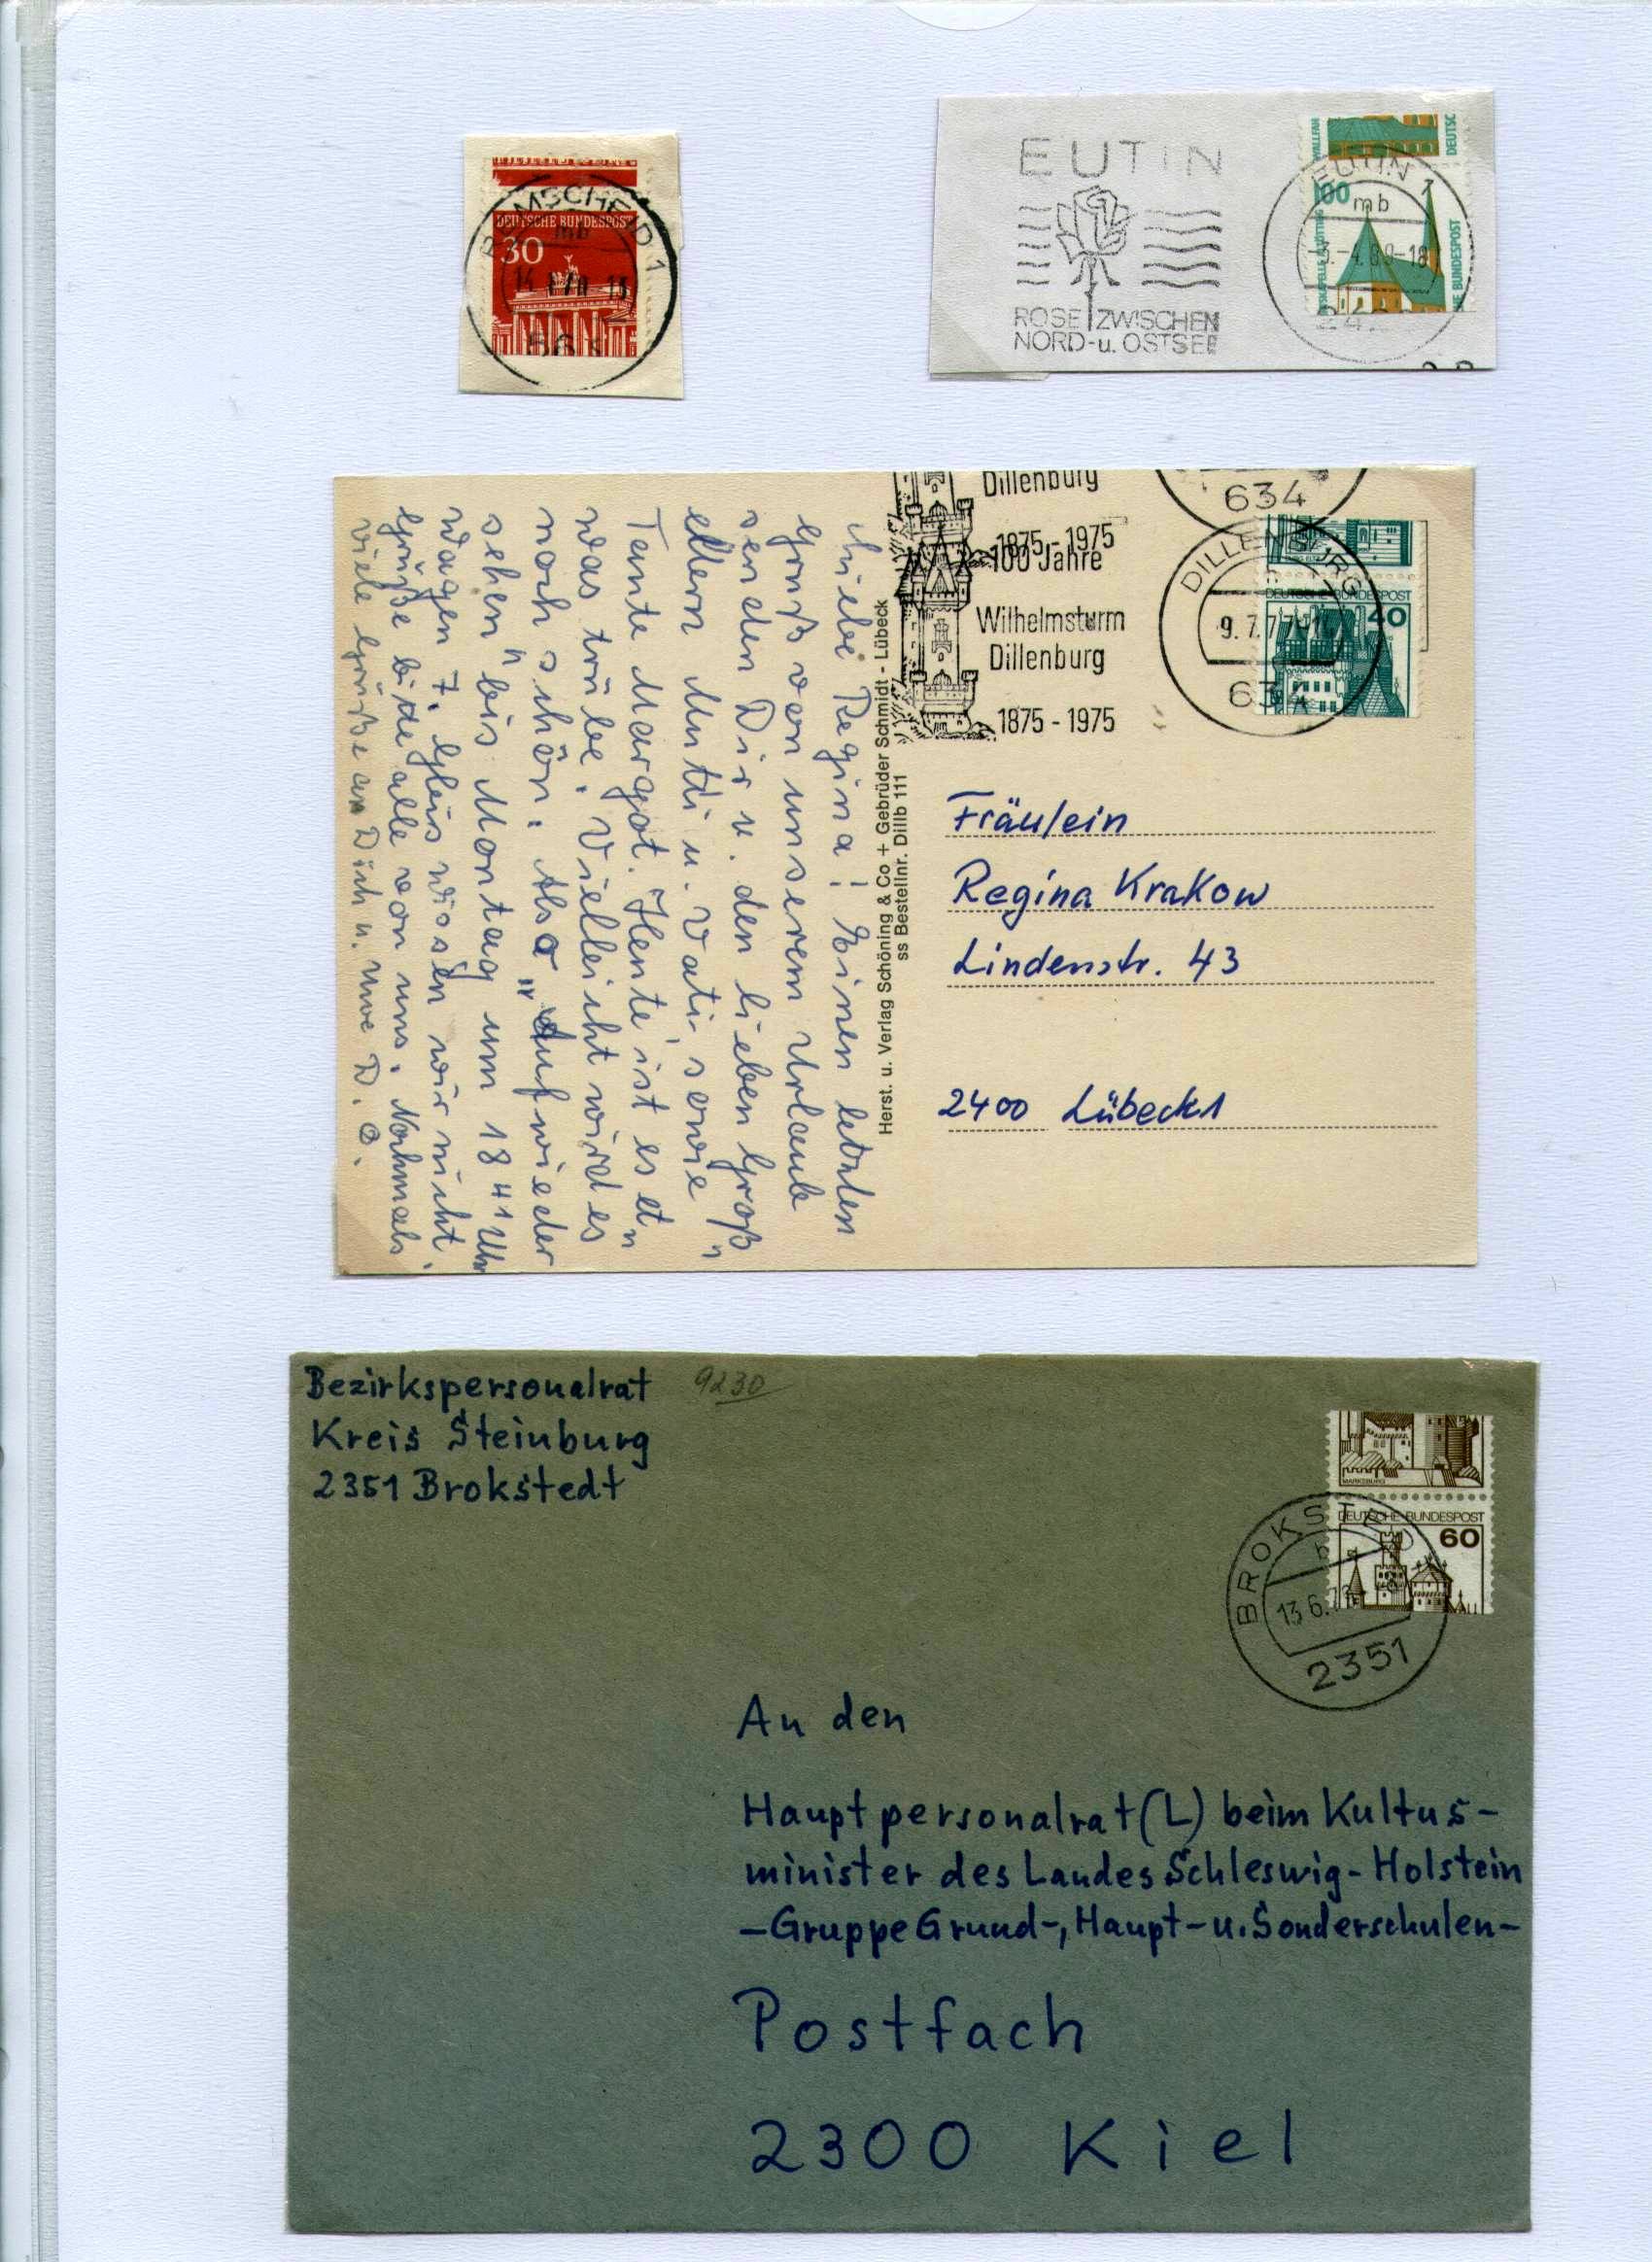 DEUTSCHE BUNDESPOST
30
REMSCHEID 1
mb
EUTIN
ROSE ZWISCHEN
NORD-u. OSTSEE
EUTIN
mb
100
DEUTSC
HE BUNDESPOST
Dillenburg
1875 - 1975
100 Jahre
Wilhelmsturm
Dillenburg
1875 - 1975
634
DILLENBURG
9. 7. 77
634
DEUTSCHE BUNDESPOST
40
Liebe Regina! Einen letzten
Gruß von unserem Urlaub
senden Dir u. den lieben Groß"
eltern Mutti u. Vati, sowie
Tante Margot. Heute ist es et"
was trübe. Vielleicht wird es
noch schön. Also "Aufwieder
sehen" bis Montag um 18 41 Uhr
Wagen 7. Gleis wissen wir nicht.
Grüße bitte alle von uns. Nochmals
viele Grüße an Dich u. Uwe D. O.
Herst. u. Verlag Schöning & Co + Gebrüder Schmidt - Lübeck
ss Bestellnr. Dillb 111
Fräulein
Regina Krakow
Lindenstr. 43
2400 Lübeck 1
Bezirkspersonalrat
Kreis Steinburg
2351 Brokstedt
9230
MARKSBURG
DEUTSCHE BUNDESPOST
60
BROKSTEDT
b
13.6.
2351
An den
Hauptpersonalrat (L) beim Kultus-
minister des Landes Schleswig-Holstein
-Gruppe Grund-, Haupt- u. Sonderschulen-
Postfach
2300 Kiel